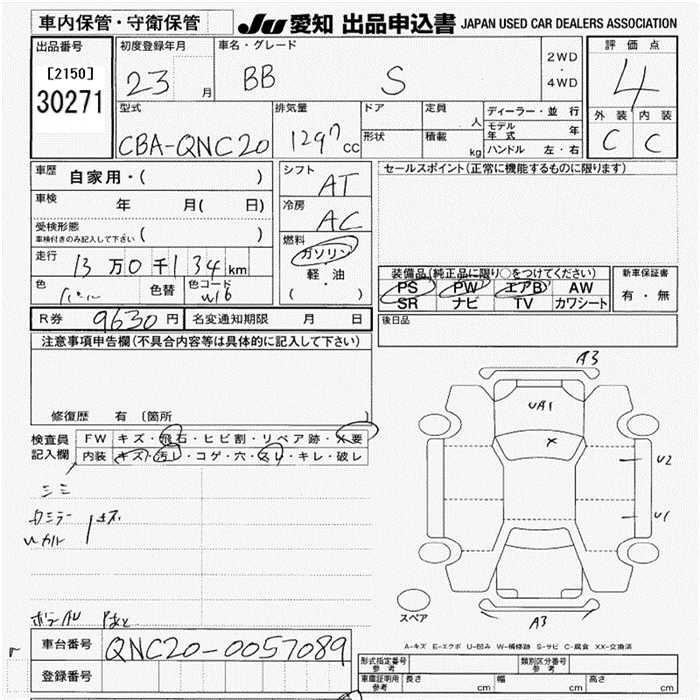 車内保管・守衛保管 JU 愛知 出品申込書 JAPAN USED CAR DEALERS ASSOCIATION
出品番号 初度登録年月 車名・グレード 2WD・4WD 評価点
[2150] 23 月 BB S 4
30271
型式 排気量 ドア 定員 人 ディーラー・並行 外装 内装
CBA-QNC20 1297cc 形状 積載 kg モデル年式 年 C C
ハンドル 左・右
車歴 自家用・( ) シフト AT セールスポイント(正常に機能するものに限ります)
車検 年 月( 日) 冷房 AC
受検形態 車検付きのみ記入して下さい ( )
燃料 ガソリン・軽・油 ( )
走行 13万0千134km
装備品(純正品に限り○をつけてください) 新車保証書
色 パール 色替 色コード W16
PS PW エアB AW 有・無
SR ナビ TV カワシート
R券 9630円 名変通知期限 月 日 後日品
注意事項申告欄(不具合内容等は具体的に記入して下さい)
修復歴 有 〔箇所 〕
検査員記入欄 FW キズ・飛石・ヒビ割・リペア跡・X要
内装 キズ・汚レ・コゲ・穴・スレ・キレ・破レ
A3
UA1
X
U2
U1
A3
スペア
A-キズ E-エクボ U-凹み W-補修跡 S-サビ C-腐食 XX-交換済
車台番号 QNC20-0057089
登録番号
型式指定番号 参考 類別区分番号 参考
車庫証明用 参考 長さ cm 幅 cm 高さ cm